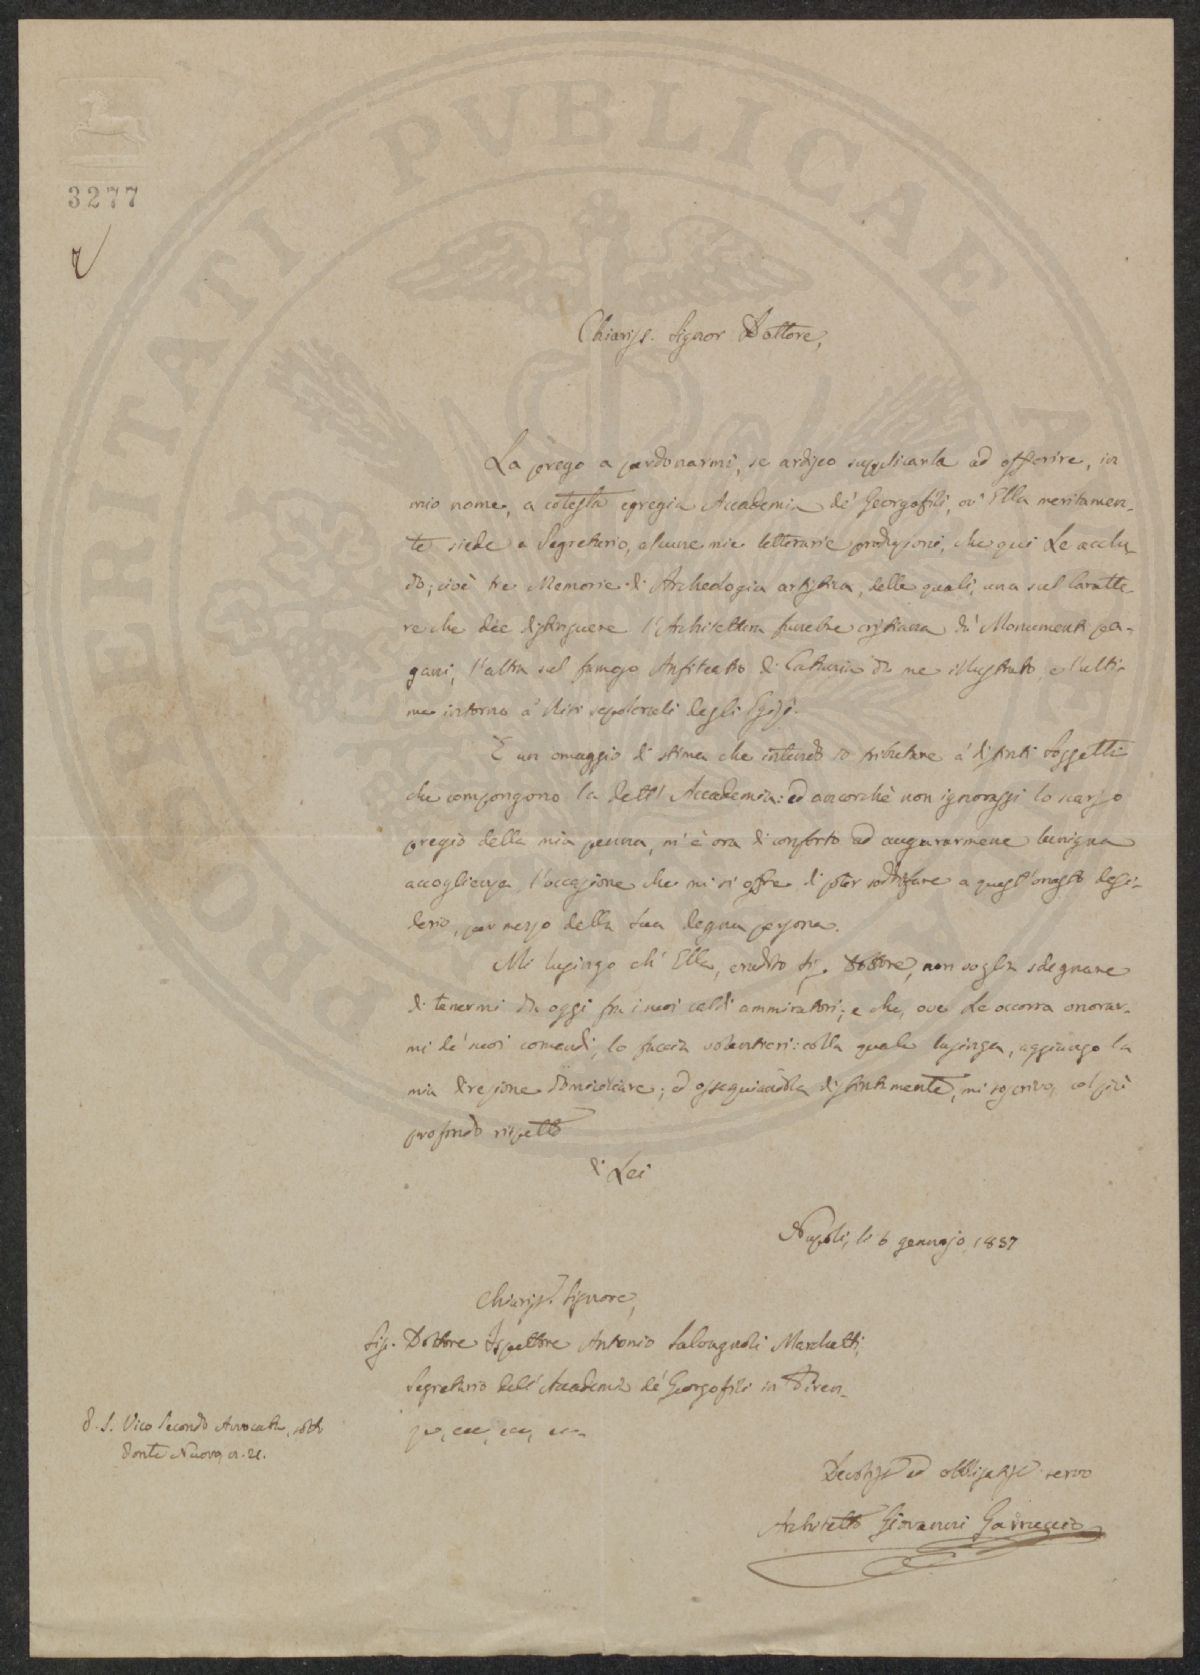 PROSPERITATI PVBLICAE A
3277
Chiariss. Signor Dottore,
La prego a perdonarmi, se ardisco supplicarla ad offerire, in
mio nome, a cotesta egregia Accademia de' Georgofili, ov' Ella meritamen-
te siede a Segretario, alcune mie letterarie produzioni, che qui Le acclu-
do; cioè tre Memorie di Archeologia artistica, delle quali, una sul Caratte-
re che dee distinguere l'Architettura funebre cristiana da' Monumenti pa-
gani, l'altra sul famoso Anfiteatro di Catania da me illustrato, e l'ulti-
ma intorno a' Riti sepolcrali degli Egizj.
È un omaggio di stima che intendo io tributare a' distinti Soggetti
che compongono la dett' Accademia: ed ancorchè non ignorassi lo scarso
pregio della mia penna, m' è ora di conforto ad augurarmene benigna
accoglienza l'occasione che mi si offre di poter sodisfare a quest'onesto desi-
derio, per mezzo della Sua degna persona.
Mi lusingo ch' Ella, erudito Sig. Dottore, non voglia sdegnare
di tenermi da oggi fra i suoi caldi ammiratori; e che, ove Le occorra onorar-
mi de' suoi comandi, lo faccia volentieri: colla quale lusinga, aggiungo la
mia direzione domiciliare; ed ossequiandola distintamente, mi soscrivo, col più
profondo rispetto
di Lei
Napoli, li 6 gennajo, 1857
Chiariss. Signore,
Sig. Dottore Ispettore Antonio Salvagnoli Marchetti,
Segretario dell' Accademia de' Georgofili in Firen-
ze, ecc, ecc, ecc.
S. Vico Secondo Avvocata, sotto
Ponte Nuovo, n. 21.
Devotiss. ed obbligatiss. servo
Architetto Giovanni Garruccio